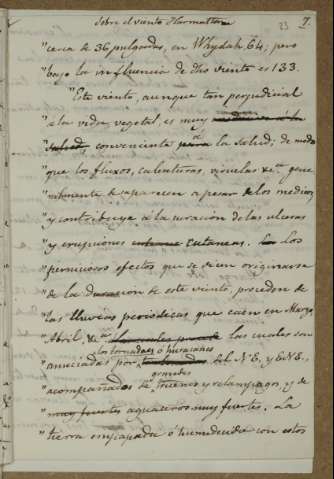 Sobre el viento Harmattan
23
7.
"cerca de 36 pulgadas, en Whydah 64; pero
"bajo la influencia de dho viento es 133.
"Este viento, aunque tan perjudicial
"a la vida vegetal, es muy
"salud, conveniente para a la Salud; de modo
"que los fluxos, calenturas, viruelas &c.ª, gene
"ralmente desaparecen a pesar de los medicos,
"y contribuye a la curacion de las ulceras
"y erupciones cutaneas. Los
"perniciosos efectos que se originarse
"de la duracion de este viento, proceden de
"las lluvias periodicas que caen en Marzo,
"Abril, &c.as las cuales son
los tornados ó huracanes
"anunciadas por del N.E, y E.N.E.
grandes
"acompañados de truenos y relampagos, y de
"muy fuertes aguaceros muy fuertes. La
"tierra empapada ó humedecida con estos